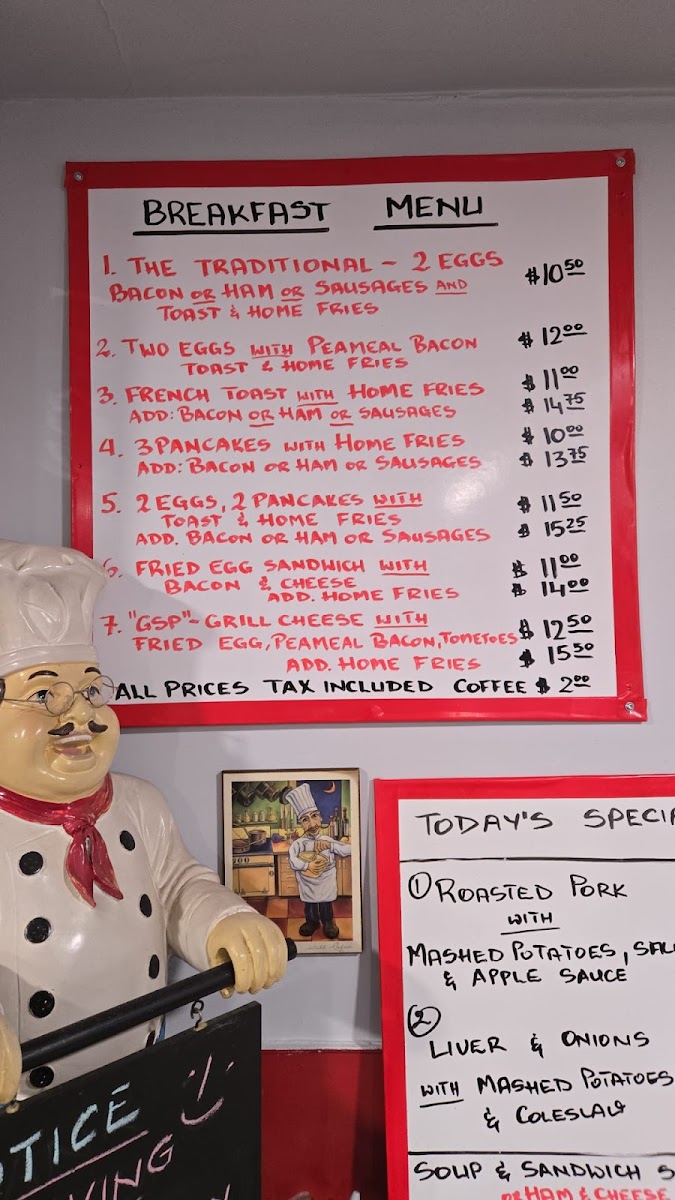 BREAKFAST MENU
1. THE TRADITIONAL - 2 EGGS
BACON OR HAM OR SAUSAGES AND $10.50
TOAST & HOME FRIES
2. TWO EGGS WITH PEAMEAL BACON $12.00
TOAST & HOME FRIES
3. FRENCH TOAST WITH HOME FRIES $11.00
ADD: BACON OR HAM OR SAUSAGES $14.75
4. 3 PANCAKES WITH HOME FRIES $10.00
ADD: BACON OR HAM OR SAUSAGES $13.75
5. 2 EGGS, 2 PANCAKES WITH $11.50
TOAST & HOME FRIES
ADD. BACON OR HAM OR SAUSAGES $15.25
6. FRIED EGG SANDWICH WITH $11.00
BACON & CHEESE
ADD. HOME FRIES $14.00
7. "GSP"- GRILL CHEESE WITH $12.50
FRIED EGG, PEAMEAL BACON, TOMETOES
ADD. HOME FRIES $15.50
ALL PRICES TAX INCLUDED COFFEE $2.00
TODAY'S
① ROASTED PORK
WITH
MASHED POTATOES,
& APPLE SAUCE
②
LIVER & ONIONS
WITH MASHED POTATOES
& COLESLAW
SOUP & SANDWICH
OR HAM & CHEESE